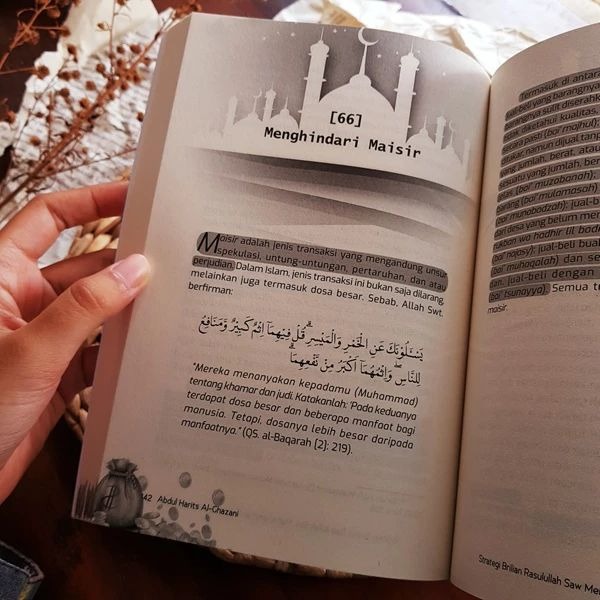 [66]
Menghindari Maisir
Maisir adalah jenis transaksi yang mengandung unsur
spekulasi, untung-untungan, pertaruhan, dan atau
perjudian. Dalam Islam. jenis transaksi ini bukan saja dilarang,
melainkan juga termasuk dosa besar. Sebab, Allah Swt.
berfirman:
يَسْـَٔلُوْنَكَ عَنِ الْخَمْرِ وَالْمَيْسِرِۗ قُلْ فِيْهِمَآ اِثْمٌ كَبِيْرٌ وَّمَنَافِعُ
لِلنَّاسِۖ وَاِثْمُهُمَآ اَكْبَرُ مِنْ نَّفْعِهِمَاۗ
"Mereka menanyakan kepadamu (Muhammad)
tentang khamar dan judi. Katakanlah: 'Pada keduanya
terdapat dosa besar dan beberapa manfaat bagi
manusia. Tetapi, dosanya lebih besar daripada
manfaatnya." (QS. al-Baqarah [2]: 219).
42 Abdul Harits Al-Ghazani
Termasuk di antara
jual-beli yang barangnya
barangnya sulit diserahk
diketahui kualitas,
cara pasti (bai' majhul);
tukar, namun dijual tanp
yang jumlah, berat, atau
sesuatu yang jumlah, ber
(bai' muzabanah);
(bai' mulamasah)
(bai' munabadzah); jual-b
desa yang belum men
hadhir lil badi
(bai' najasy); jual-beli bual
(bai' muhaqalah) dan se
jual-beli dengan
(bai' tsunayya). Semua t
maisir.
Strategi Brilian Rasulullah Saw Me